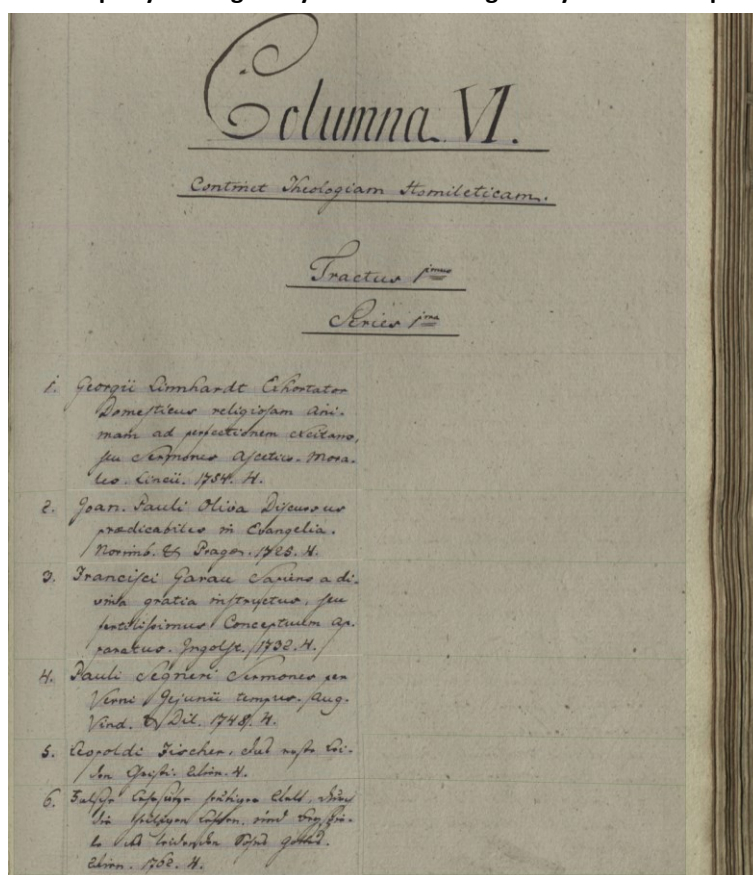 Columna VI.
Continet Theologiam Homileticam.
Tractus 1mus
Series 1ma
1. Georgii Linnhardt Exhortator
Domesticus religiosam ani-
mam ad perfectionem excitans,
seu Sermones Ascetico-Mora-
les. Lincii. 1754. 4.
2. Joan. Pauli Oliva Discursus
prædicabiles in Evangelia.
Norimb. & Pragæ. 1725. 4.
3. Francisci Garau Sapiens a di-
vina gratia instructus, seu
fertilissimus Conceptuum Ap-
paratus. Ingolst. 1732. 4.
4. Pauli Segneri Sermones per
Verni Jejunii tempus. Aug.
Vind. & Dil. 1748. 4.
5. Leopoldi Fischer, das
Wien. 4.
6.
Wien. 1762. 4.